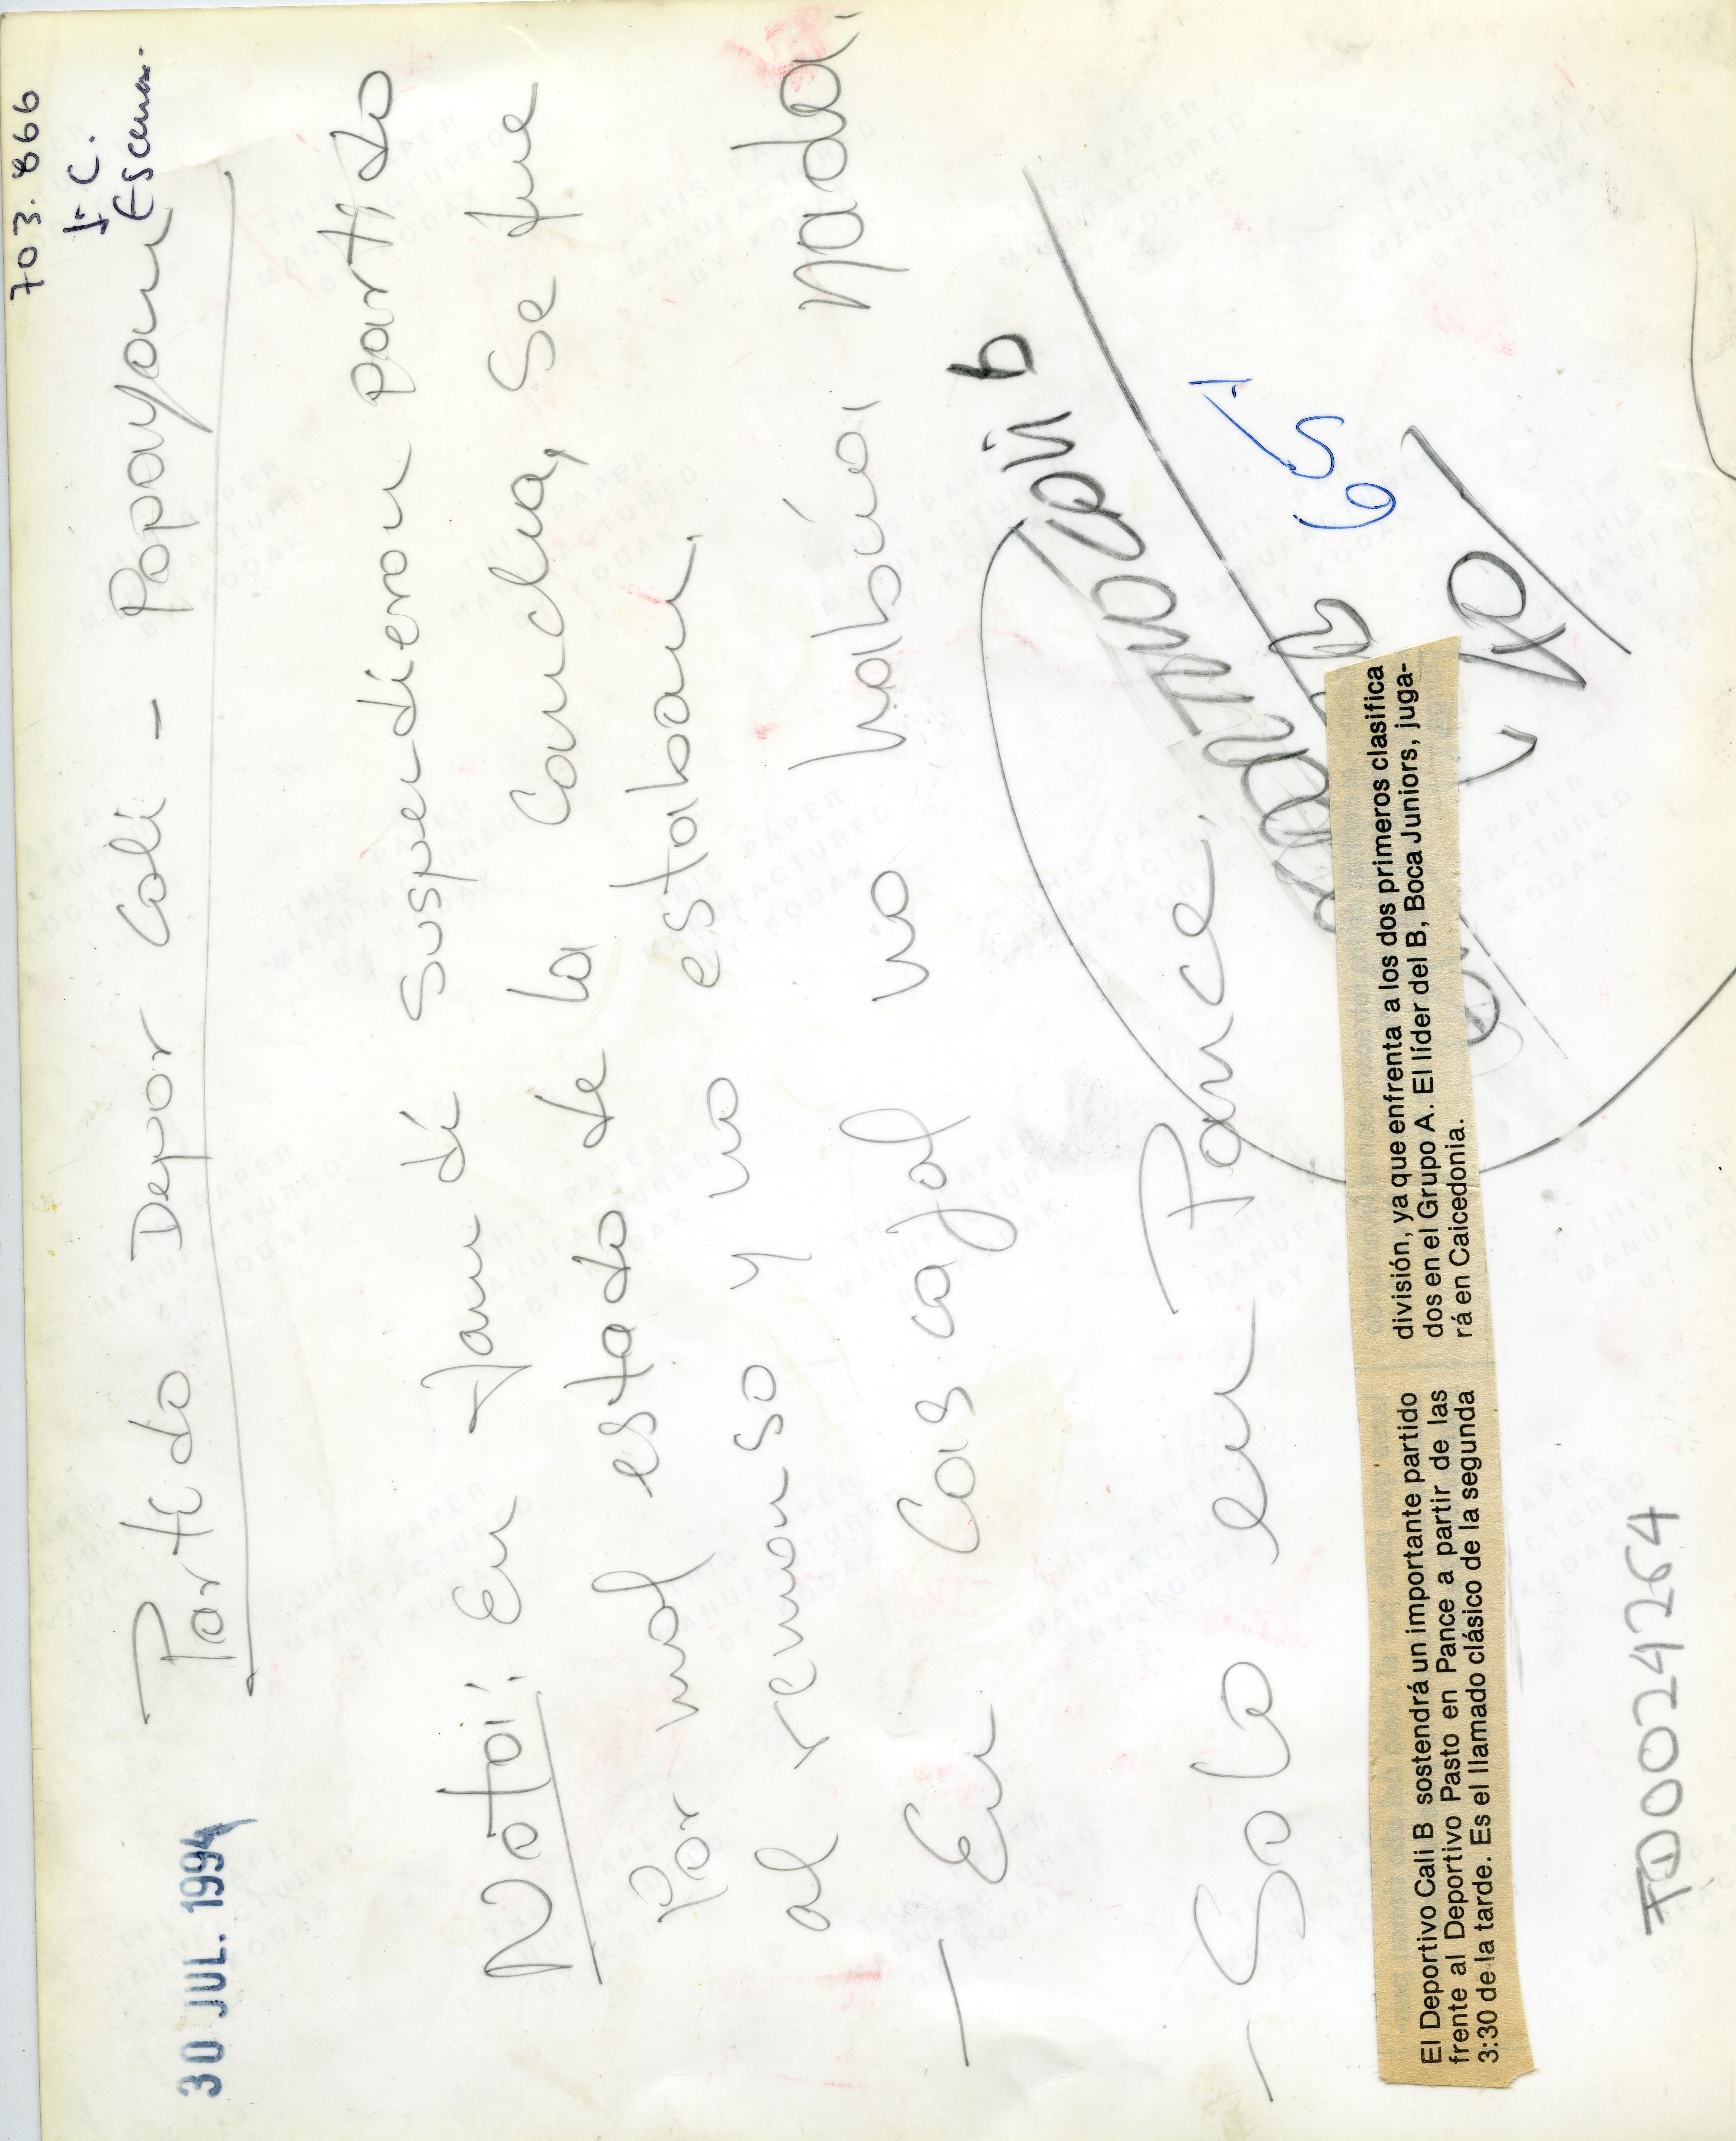 703.866
F.C.
30 JUL. 1994
Partido Depor Cali - Popayan
Nota: En Jamundí suspendieron partido
Por mal estado de la Cancha, se fue
al remanso y no estaban.
- En Cascajal no había nada.
- Solo en Pance.
b
El Deportivo Cali B sostendrá un importante partido
frente al Deportivo Pasto en Pance a partir de las
3:30 de la tarde. Es el llamado clásico de la segunda
división, ya que enfrenta a los dos primeros clasifica
dos en el Grupo A. El líder del B, Boca Juniors, juga-
rá en Caicedonia.
FD00249264
THIS PAPER
MANUFACTURED
BY KODAK